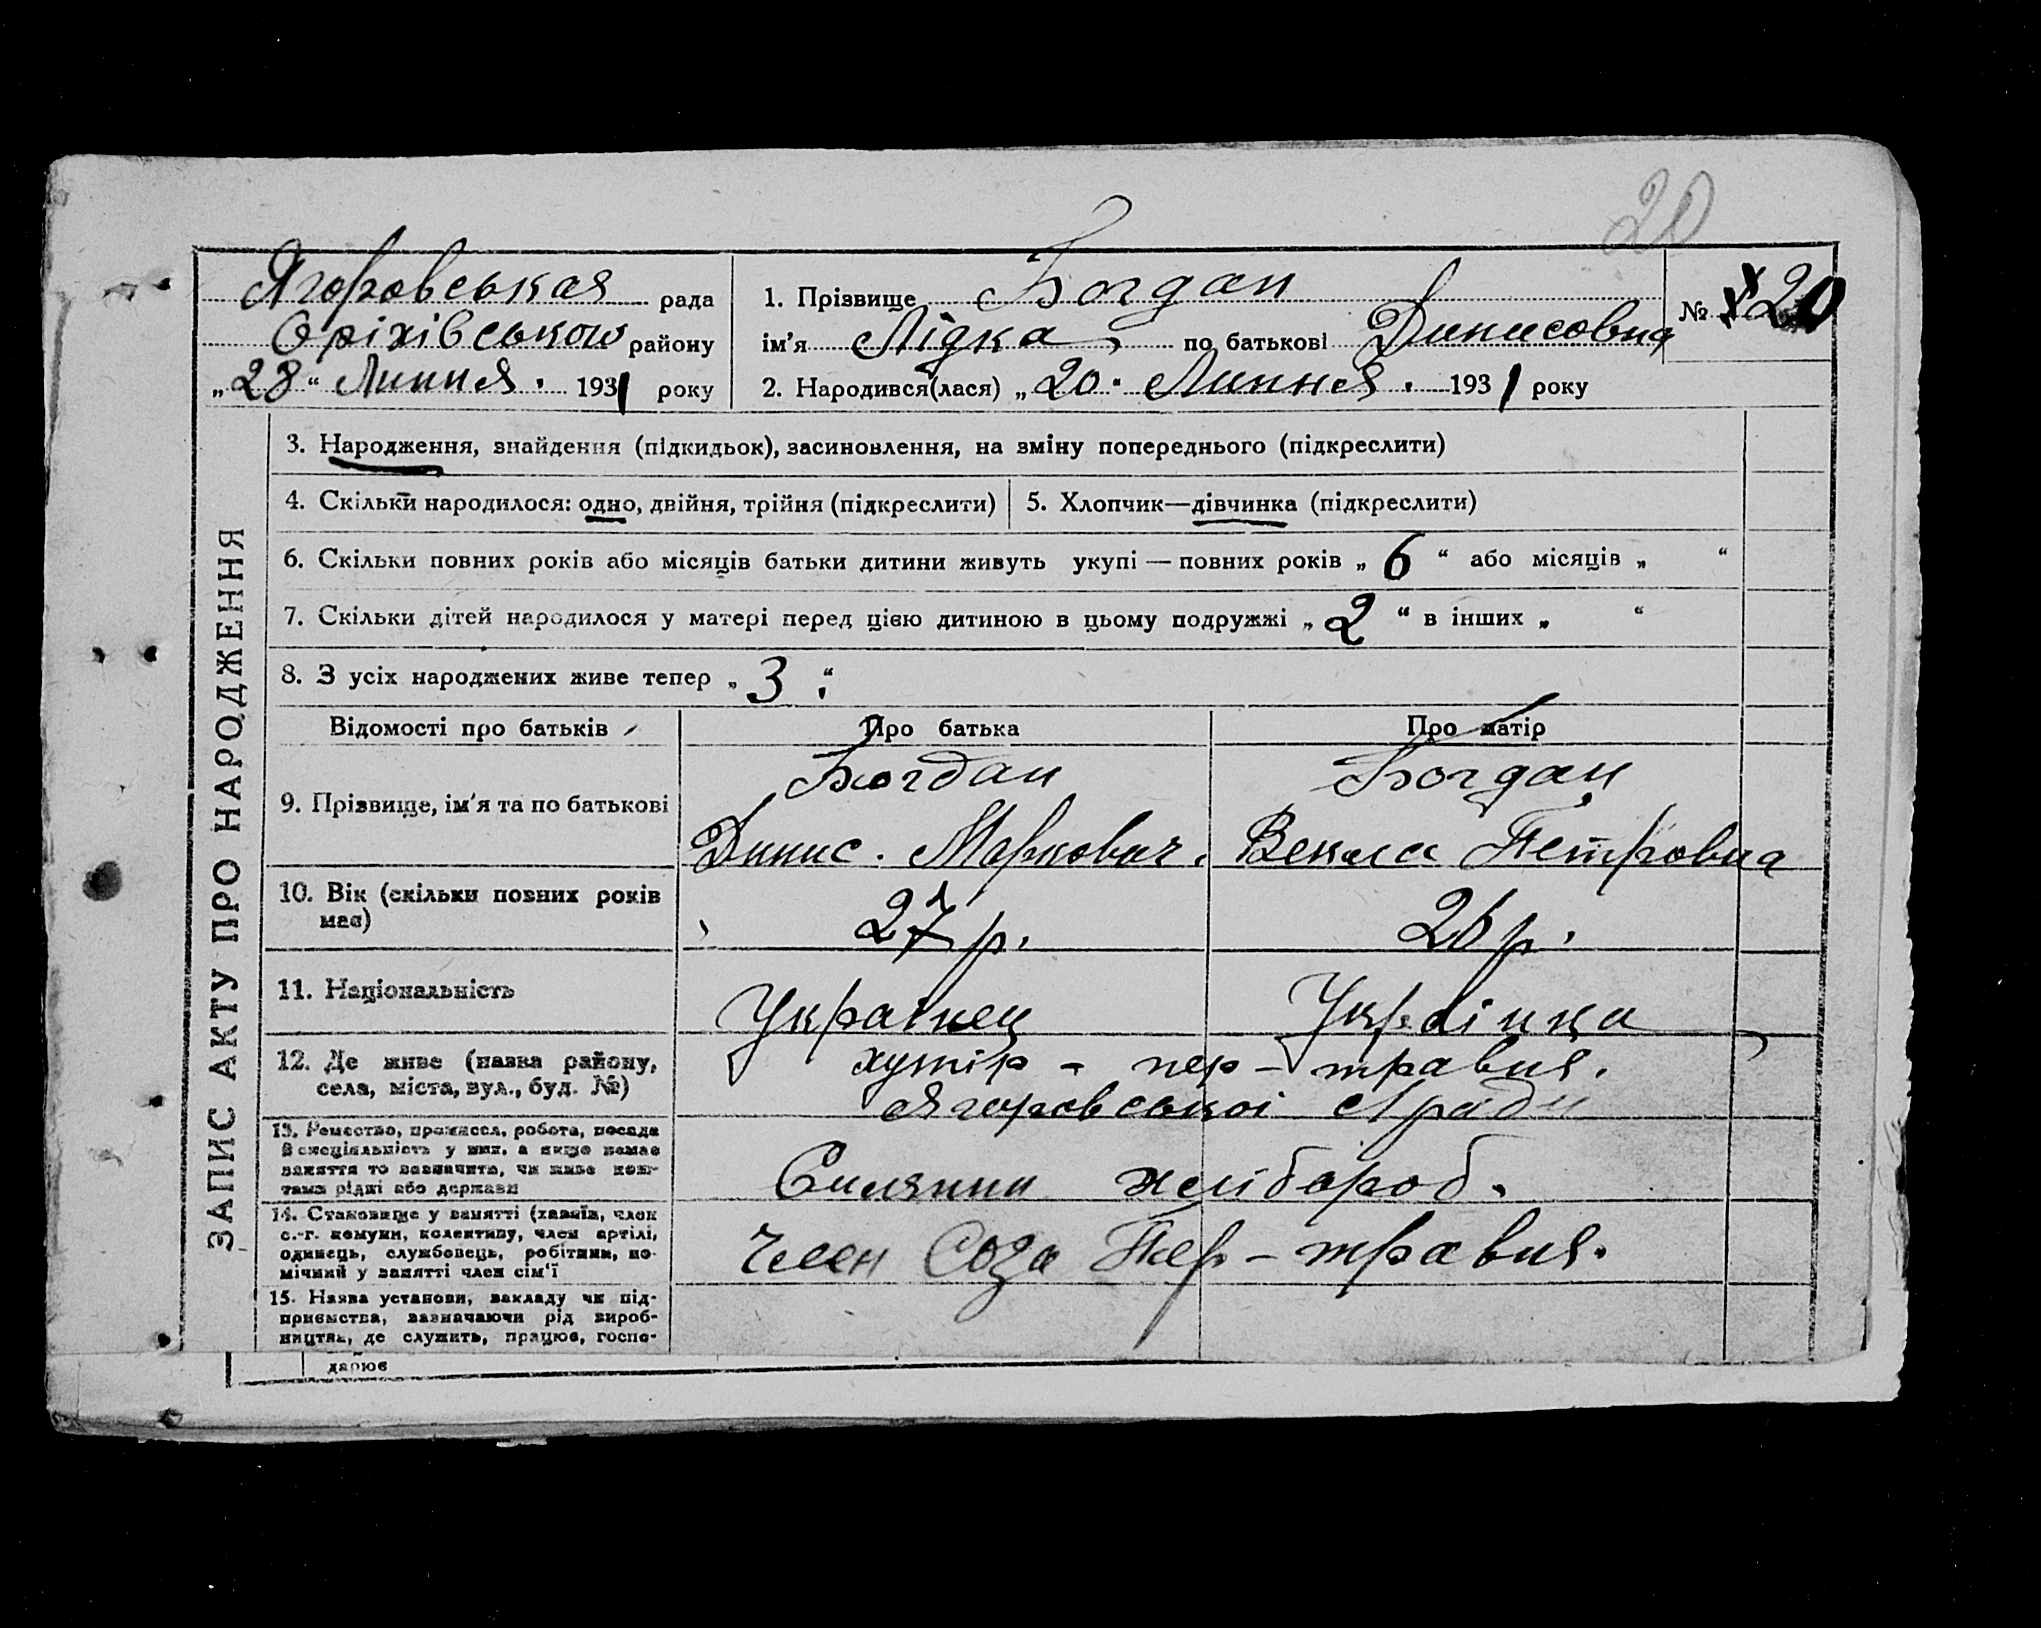 20
Ягоровськая рада
Оріхівського району
„28“ Липня. 1931 року
1. Прізвище Богдан
ім’я Лідка, по батькові Динисовна
№ 20
2. Народився(лася) „20“ Липня. 1931 року
ЗАПИС АКТУ ПРО НАРОДЖЕННЯ
3. Народження, знайдення (підкидьок), засиновлення, на зміну попереднього (підкреслити)
4. Скільки народилося: одно, двійня, трійня (підкреслити)
5. Хлопчик—дівчинка (підкреслити)
6. Скільки повних років або місяців батьки дитини живуть укупі — повних років „6“ або місяців „ “
7. Скільки дітей народилося у матері перед цією дитиною в цьому подружжі „2“ в інших „ “
8. З усіх народжених живе тепер „3“
Відомості про батьків
Про батька
Про матір
9. Прізвище, ім’я та по батькові
Богдан
Динис. Маркович.
Богдан
Векла Петровна
10. Вік (скільки повних років
має)
27 р.
26 р.
11. Національність
Українец
Українка
12. Де живе (назва району,
села, міста, вул., буд. №)
хутір - пер - травня.
Ягоровської с/ради
13. Ремество, промисел, робота, посада
й спеціяльність у них, а якщо немає
заняття то зазначити, чи живе кош-
тами рідні або держави
Силянин хлібороб.
14. Становище у занятті (хазяїн, член
с.-г. комуни, колективу, член артілі,
одинець, службовець, робітник, по-
мічний у занятті член сім’ї
Член Соза Пер - травня.
15. Назва установи, закладу чи під-
приємства, зазначаючи рід вироб-
ництва, де служить, працює, госпо-
дарює